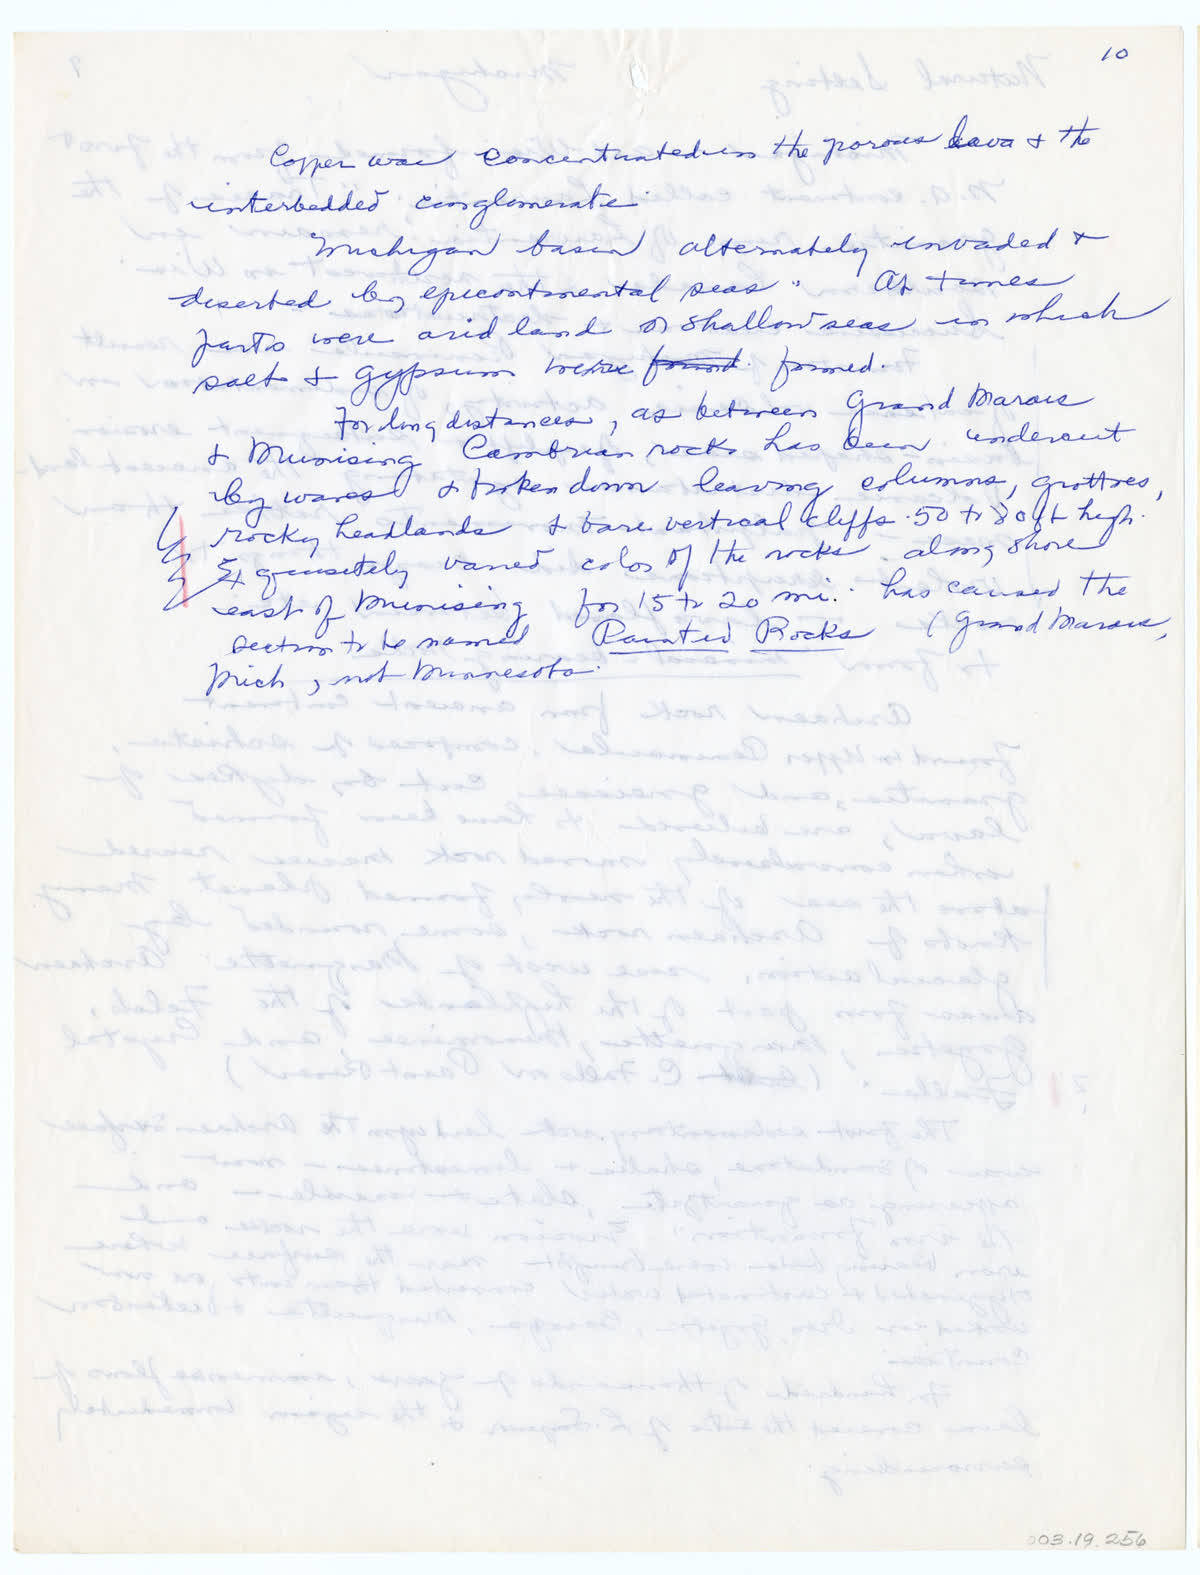 10
Copper was concentrated in the porous lava & the
interbedded conglomerate
Michigan basin alternately invaded &
deserted by epicontinental seas. At times
parts were arid land or shallow seas in which
salt & gypsum were found formed.
For long distances, as between Grand Marais
& Munising Cambrian rocks has been undercut
by waves & broken down leaving columns, grottoes,
rocky headlands & bare vertical cliffs 50 to 80 ft high.
Exquisitely varied color of the rocks along shore
east of Munising for 15 to 20 mi. has caused the
section to be named Painted Rocks (Grand Marais,
Mich, not Minnesota.
003.19.256